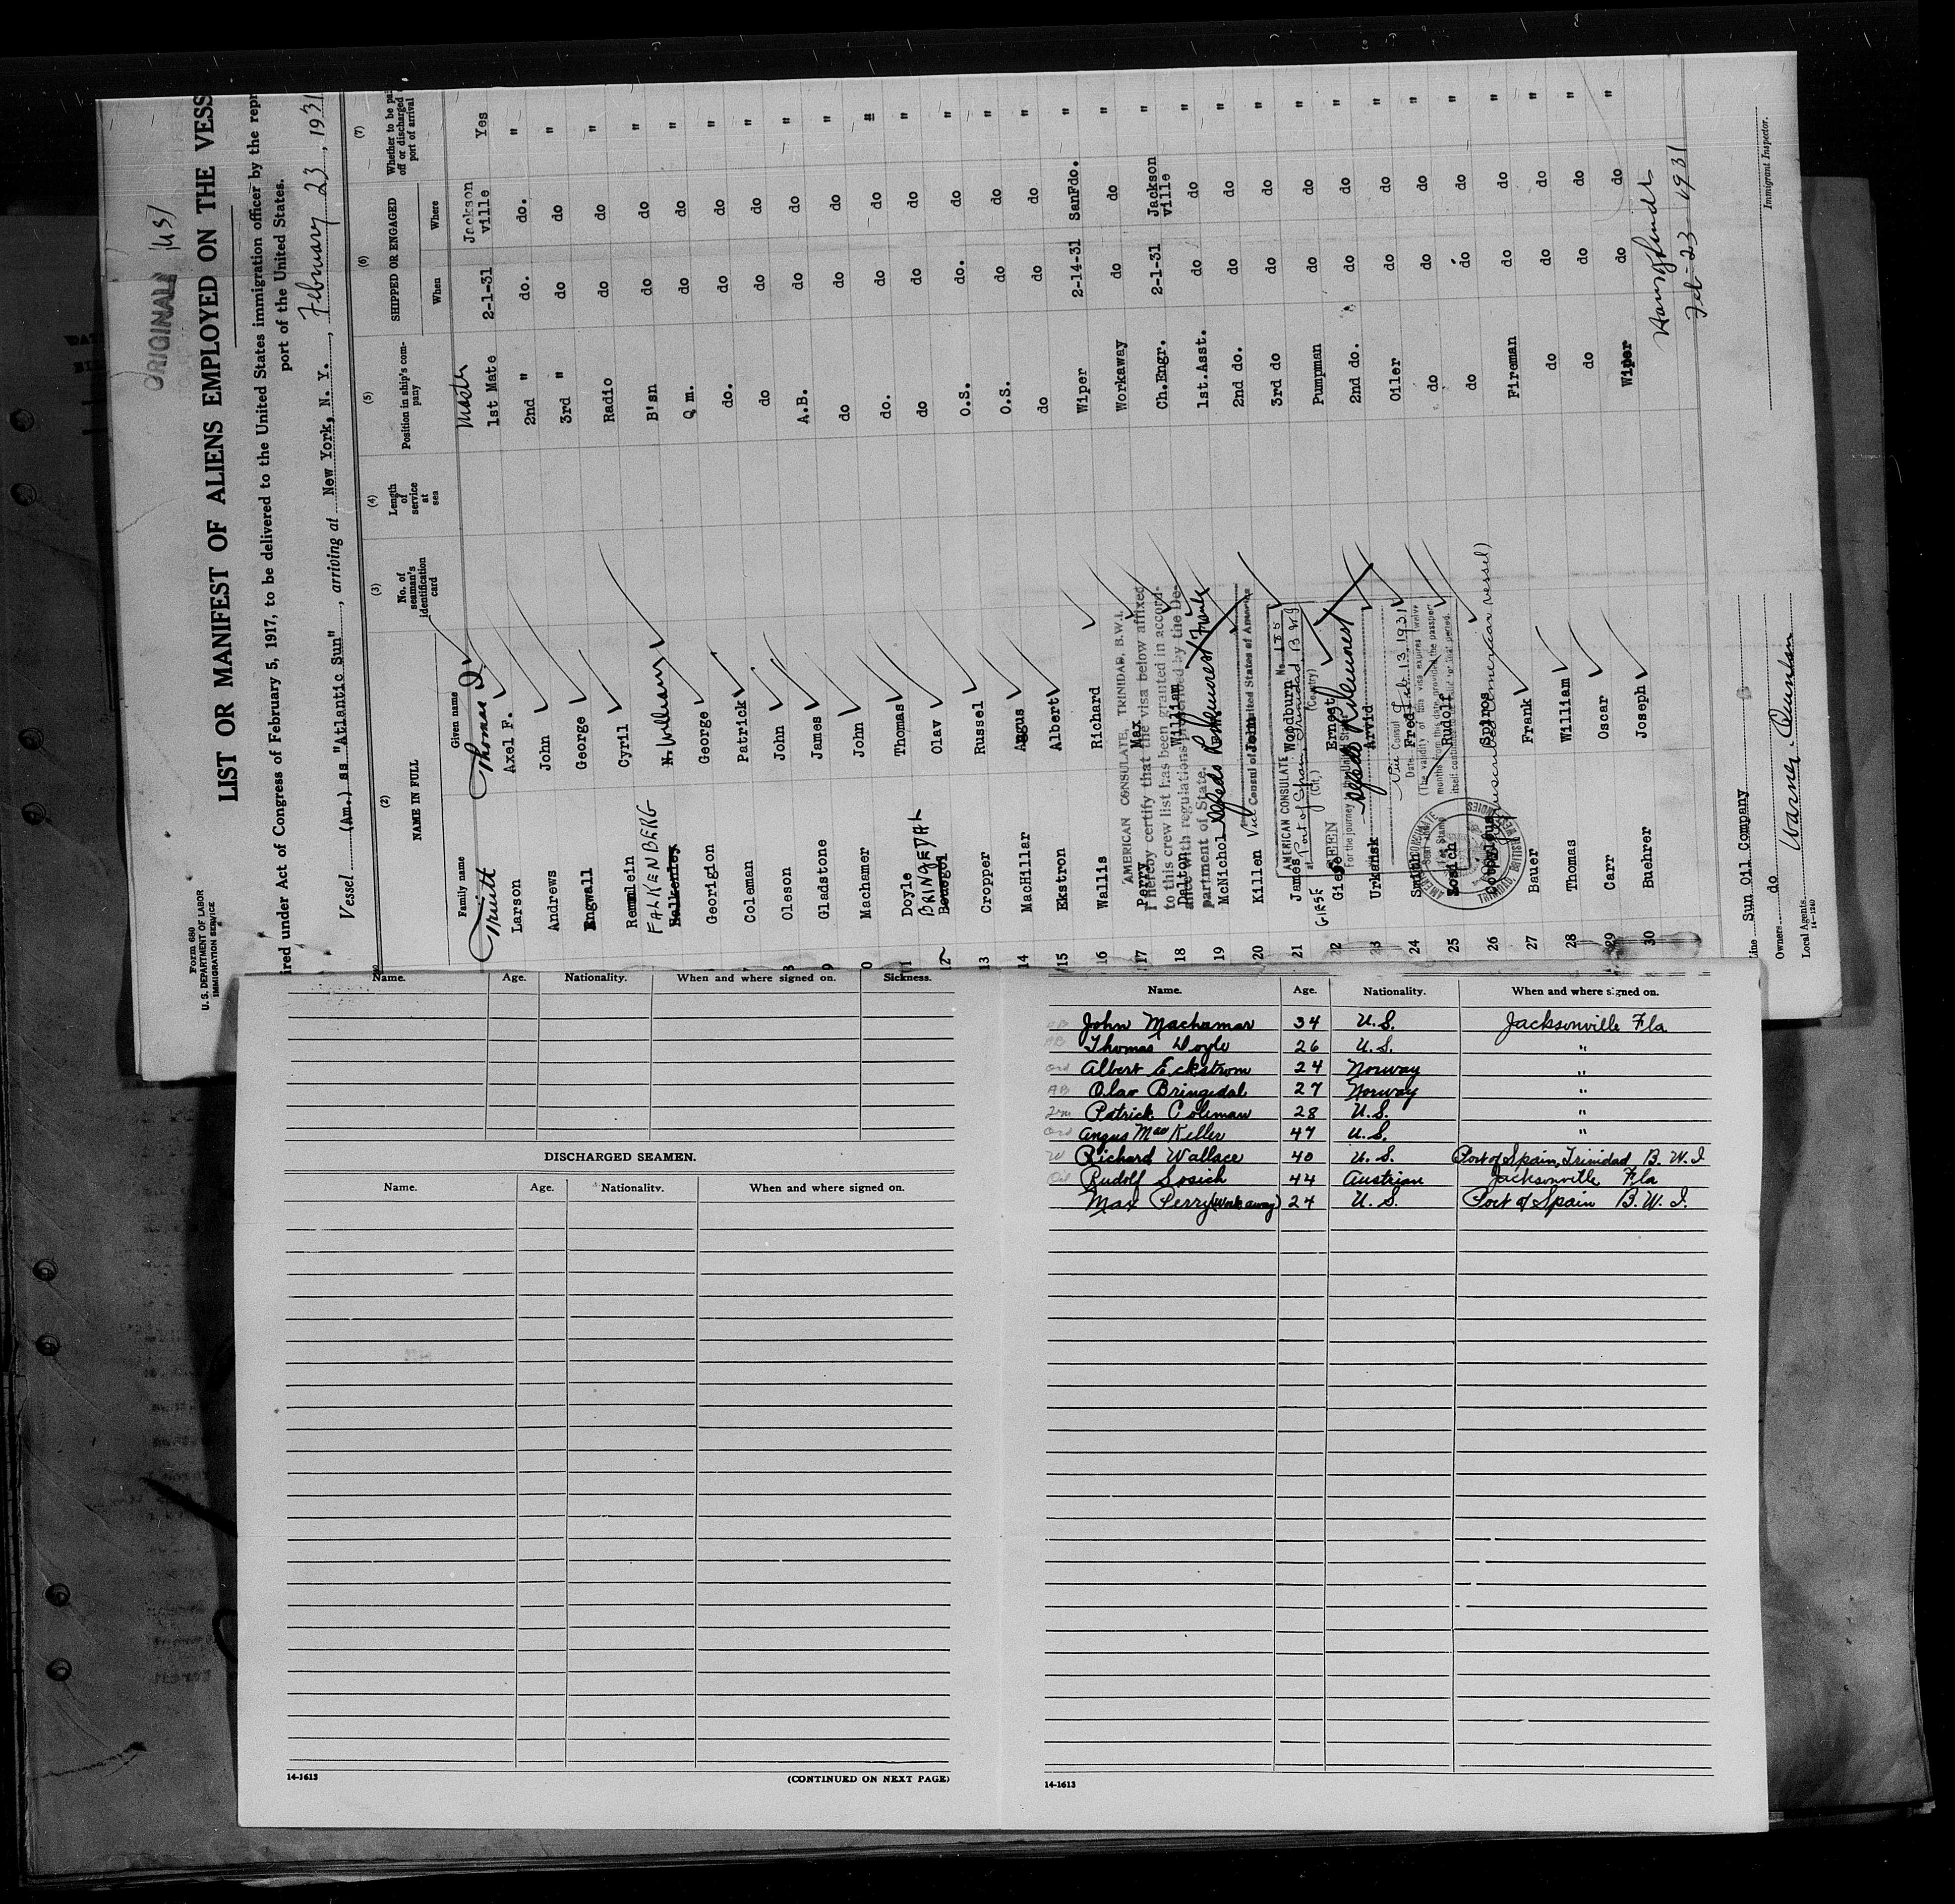 ORIGINAL
Form 680
U. S. DEPARTMENT OF LABOR
IMMIGRATION SERVICE
LIST OR MANIFEST OF ALIENS EMPLOYED ON THE VESS
ired under Act of Congress of February 5, 1917, to be delivered to the United States immigration officer by the repr
port of the United States.
Vessel (Am.) ss "Atlantic Sun", arriving at New York, N. Y., February 23, 1931
(2) (3) (4) (5) (6) (7)
NAME IN FULL
No. of seaman's identification card
Length of service at sea
Position in ship's com-pany
SHIPPED OR ENGAGED
Whether to be pai off or discharged port of arrival
Family name Given name When Where
Thomas Master
Larson Axel F. 1st Mate 2-1-31 Jackson ville Yes
Andrews John 2nd " do. do. "
Engwall George 3rd " do do "
Remmlein Cyril Radio do do "
FALKENBERG N. William B'sn do do "
Georigion George Q m. do do "
Coleman Patrick do. do do "
Oleson John do do do "
Gladstone James A.B. do do "
Machamer John do do do "
Doyle Thomas do. do do "
12 BRINGEDAL Olav do do do "
13 Cropper Russel O.S. do. do. "
14 MacHillar Angus O.S. do do "
15 Ekstron Albert do do do "
16 Wallis Richard Wiper 2-14-31 SanFdo. "
17 Perry Max Workaway do do "
18 Dalton William Ch.Engr. 2-1-31 Jackson ville "
19 McNichol Frank 1st.Asst. do do "
20 Killen John 2nd do. do do "
21 James Woodburn 3rd do do do "
22 Giese Ernest Pumpman do do "
GIESE
23 Urkansk Arvid 2nd do. do do "
24 Smith Fred Oiler do do "
25 Sosich Rudolf do do do "
26 Spiros do do do "
27 Bauer Frank Fireman do do "
28 Thomas William do do do "
29 Carr Oscar do do do "
30 Buehrer Joseph Wiper do do "
AMERICAN CONSULATE, TRINIDAD, B.W.I.
I hereby certify that the visa below affixed
to this crew list has been granted in accord-
ance with regulations prescribed by the De-
partment of State.
Vice Consul of the United States of America
AMERICAN CONSULATE No. 185
at Port of Spain, Trinidad B W I
(City) (Country)
SEEN
For the journey to the United States
Vice Consul
Date Feb. 13, 1931
(The validity of this visa expires twelve
months from this date, provided the passport
itself continues to be valid for that period.
Fee Stamp
TRINIDAD, BRITISH WEST INDIES
Feb-23 1931
Line Sun Oil Company
Owners do
Local Agents Warner Quinlan
14-1240
Immigrant Inspector.
Name. Age. Nationality. When and where signed on. Sickness.
DISCHARGED SEAMEN.
Name. Age. Nationality. When and where signed on.
14-1613 (CONTINUED ON NEXT PAGE)
Name. Age. Nationality. When and where signed on.
John Machamar 34 U.S. Jacksonville Fla
AB Thomas Doyle 26 U.S. "
Ord Albert Eckstrom 24 Norway "
AB Olav Bringedal 27 Norway "
Qm Patrick Coleman 28 U.S. "
Ord Angus MacKeller 47 U.S. "
W Richard Wallace 40 U.S. Port of Spain, Trinidad B.W.I
Oil Rudolf Sosich 44 Austrian Jacksonville Fla
Max Perry (Workaway) 24 U.S. Port of Spain B.W.I.
14-1613